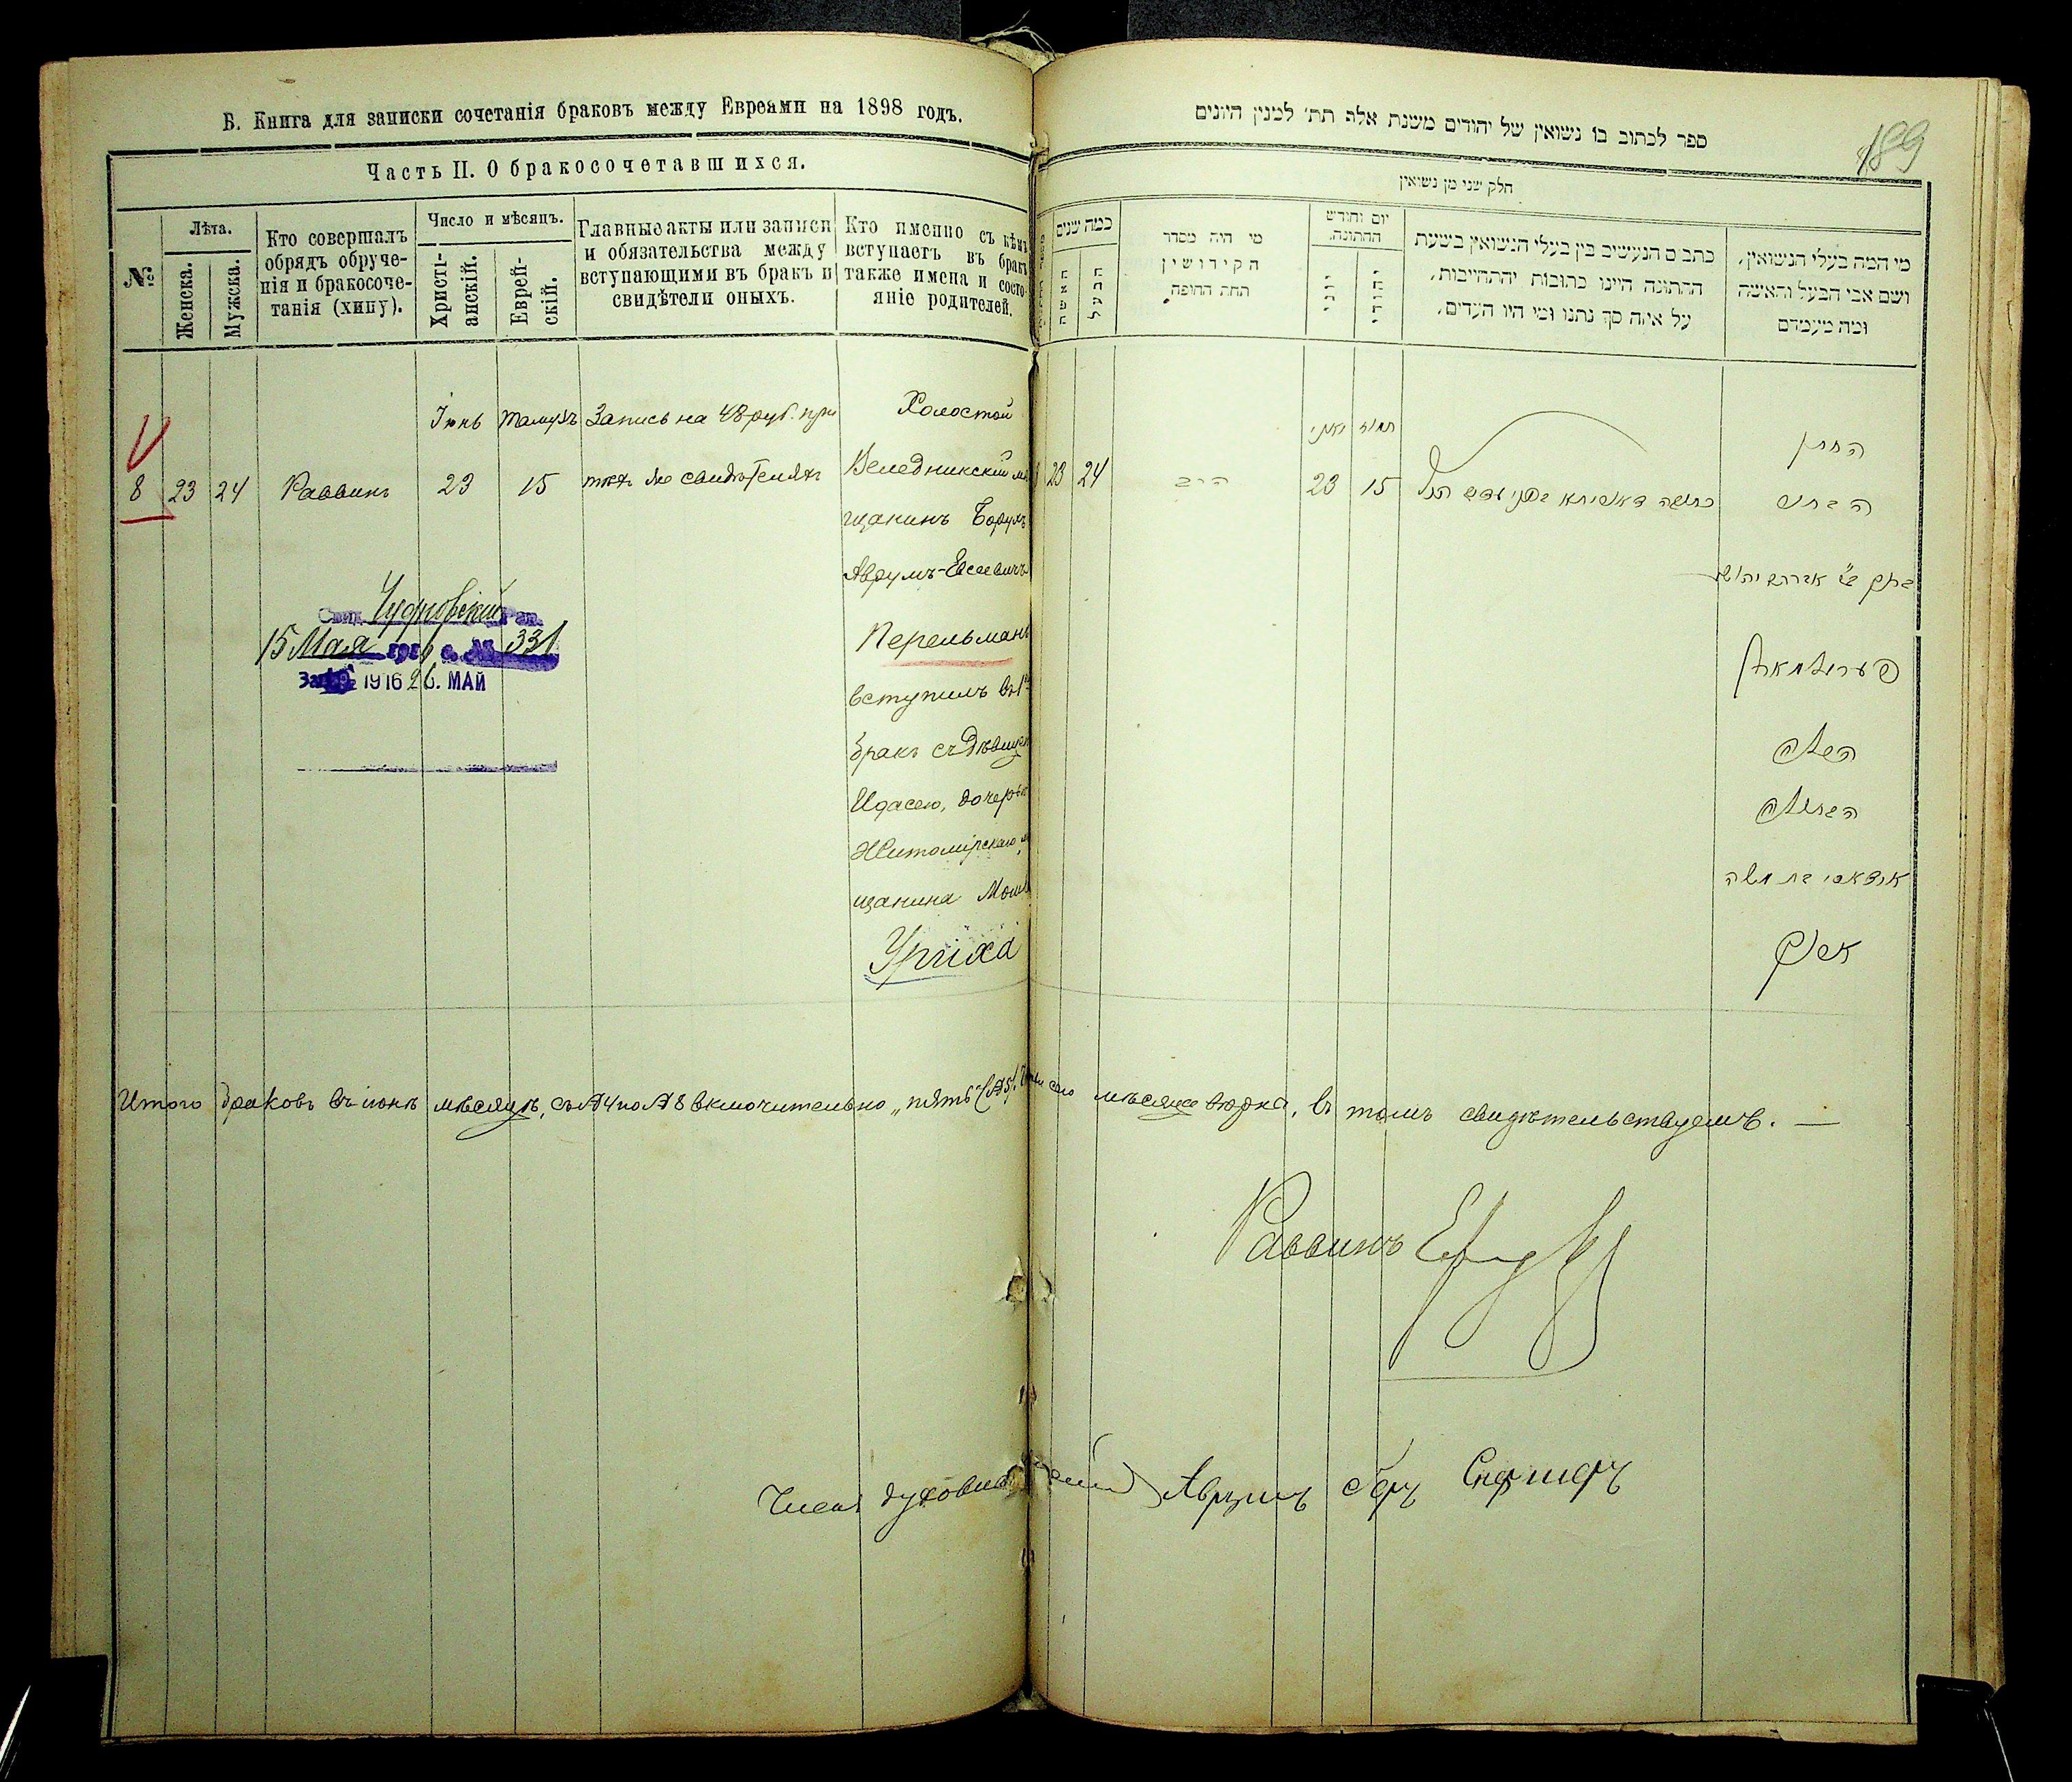 Б. Книга для записки сочетанія браковъ между Евреями на 1898 годъ.
Часть II. О бракосочетавшихся.
№
Лѣта.
Женска.
Мужска.
Кто совершалъ
обрядъ обруче-
нія и бракосоче-
танія (хипу).
Число и мѣсяцъ.
Христі-
анскій.
Еврей-
скій.
Главные акты или записи
и обязательства между
вступающими въ бракъ и
свидѣтели оныхъ.
Кто именно съ кѣмъ
вступаетъ въ бракъ
также имена и состо-
яніе родителей.
Іюнь Тамузъ Запись на 48 руб. при
8 23 24 Раввинъ 23 15 тѣхъ же свидѣтеляхъ
Холостой
Веледникскій мѣ
щанинъ Борухъ
Аврумъ-Евсеевичъ
Перельманъ
вступилъ въ 1й
бракъ съ дѣвицею
Идасею, дочерью
Житомірскаго мѣ
щанина Мошка
15 Мая 331
1916 26. МАЙ
ספר לכתוב בו נשואין של יהודים משנת אלף תת׳ למנין היונים
189
חלק שני מן נשואין
כמה שנים
האשה
הבעל
מי היה מסדר
הקידושין
תחת החופה
יום וחודש
החתונה.
יוני
יהודי
כתבים הנעשים בין בעלי הנשואין בשעת
החתונה היינו כתובות והתחייבות,
על איזה סך נתנו ומי היו העדים,
מי המה בעלי הנשואין,
ושם אבי הבעל והאשה
ומה מעמדם
יאני תמוז
23 24 הרב 23 15
החתן
הבחור
פערעלמאן
משה
Итого браковъ въ іюнѣ мѣсяцѣ, съ №4 по №8 включительно „пять" (№5). сего мѣсяца, въ томъ свидѣтельствуемъ. —
Раввинъ
Членъ духовнаго Аврумъ